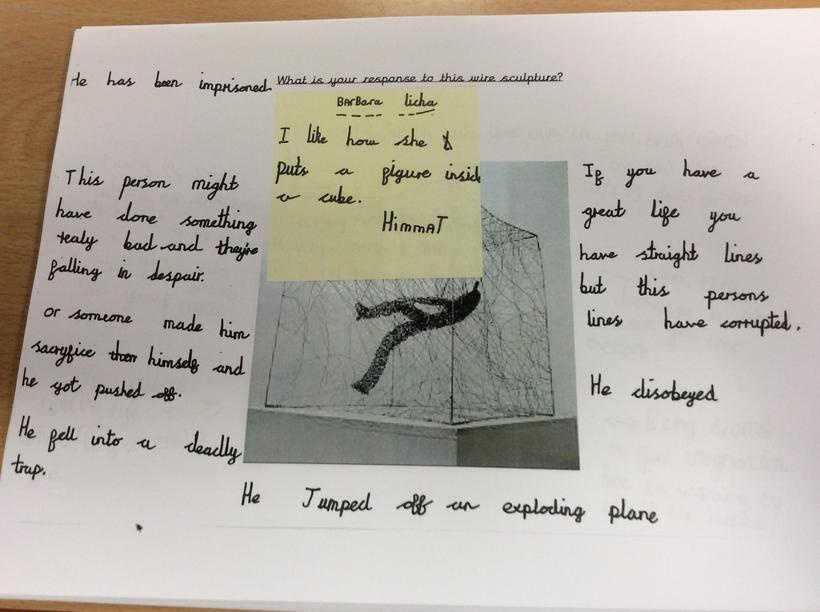 He has been imprisoned.
What is your response to this wire sculpture?
BarBara licha
I like how she
puts a figure insid
a cube.
HimmaT
This person might
have done something
realy bad and they're
falling in despair.
or someone made him
sacryfice then himself and
he got pushed off.
He fell into a deadly
trap.
If you have a
great life you
have straight lines
but this persons
lines have corrupted.
He disobeyed
He Jumped off an exploding plane